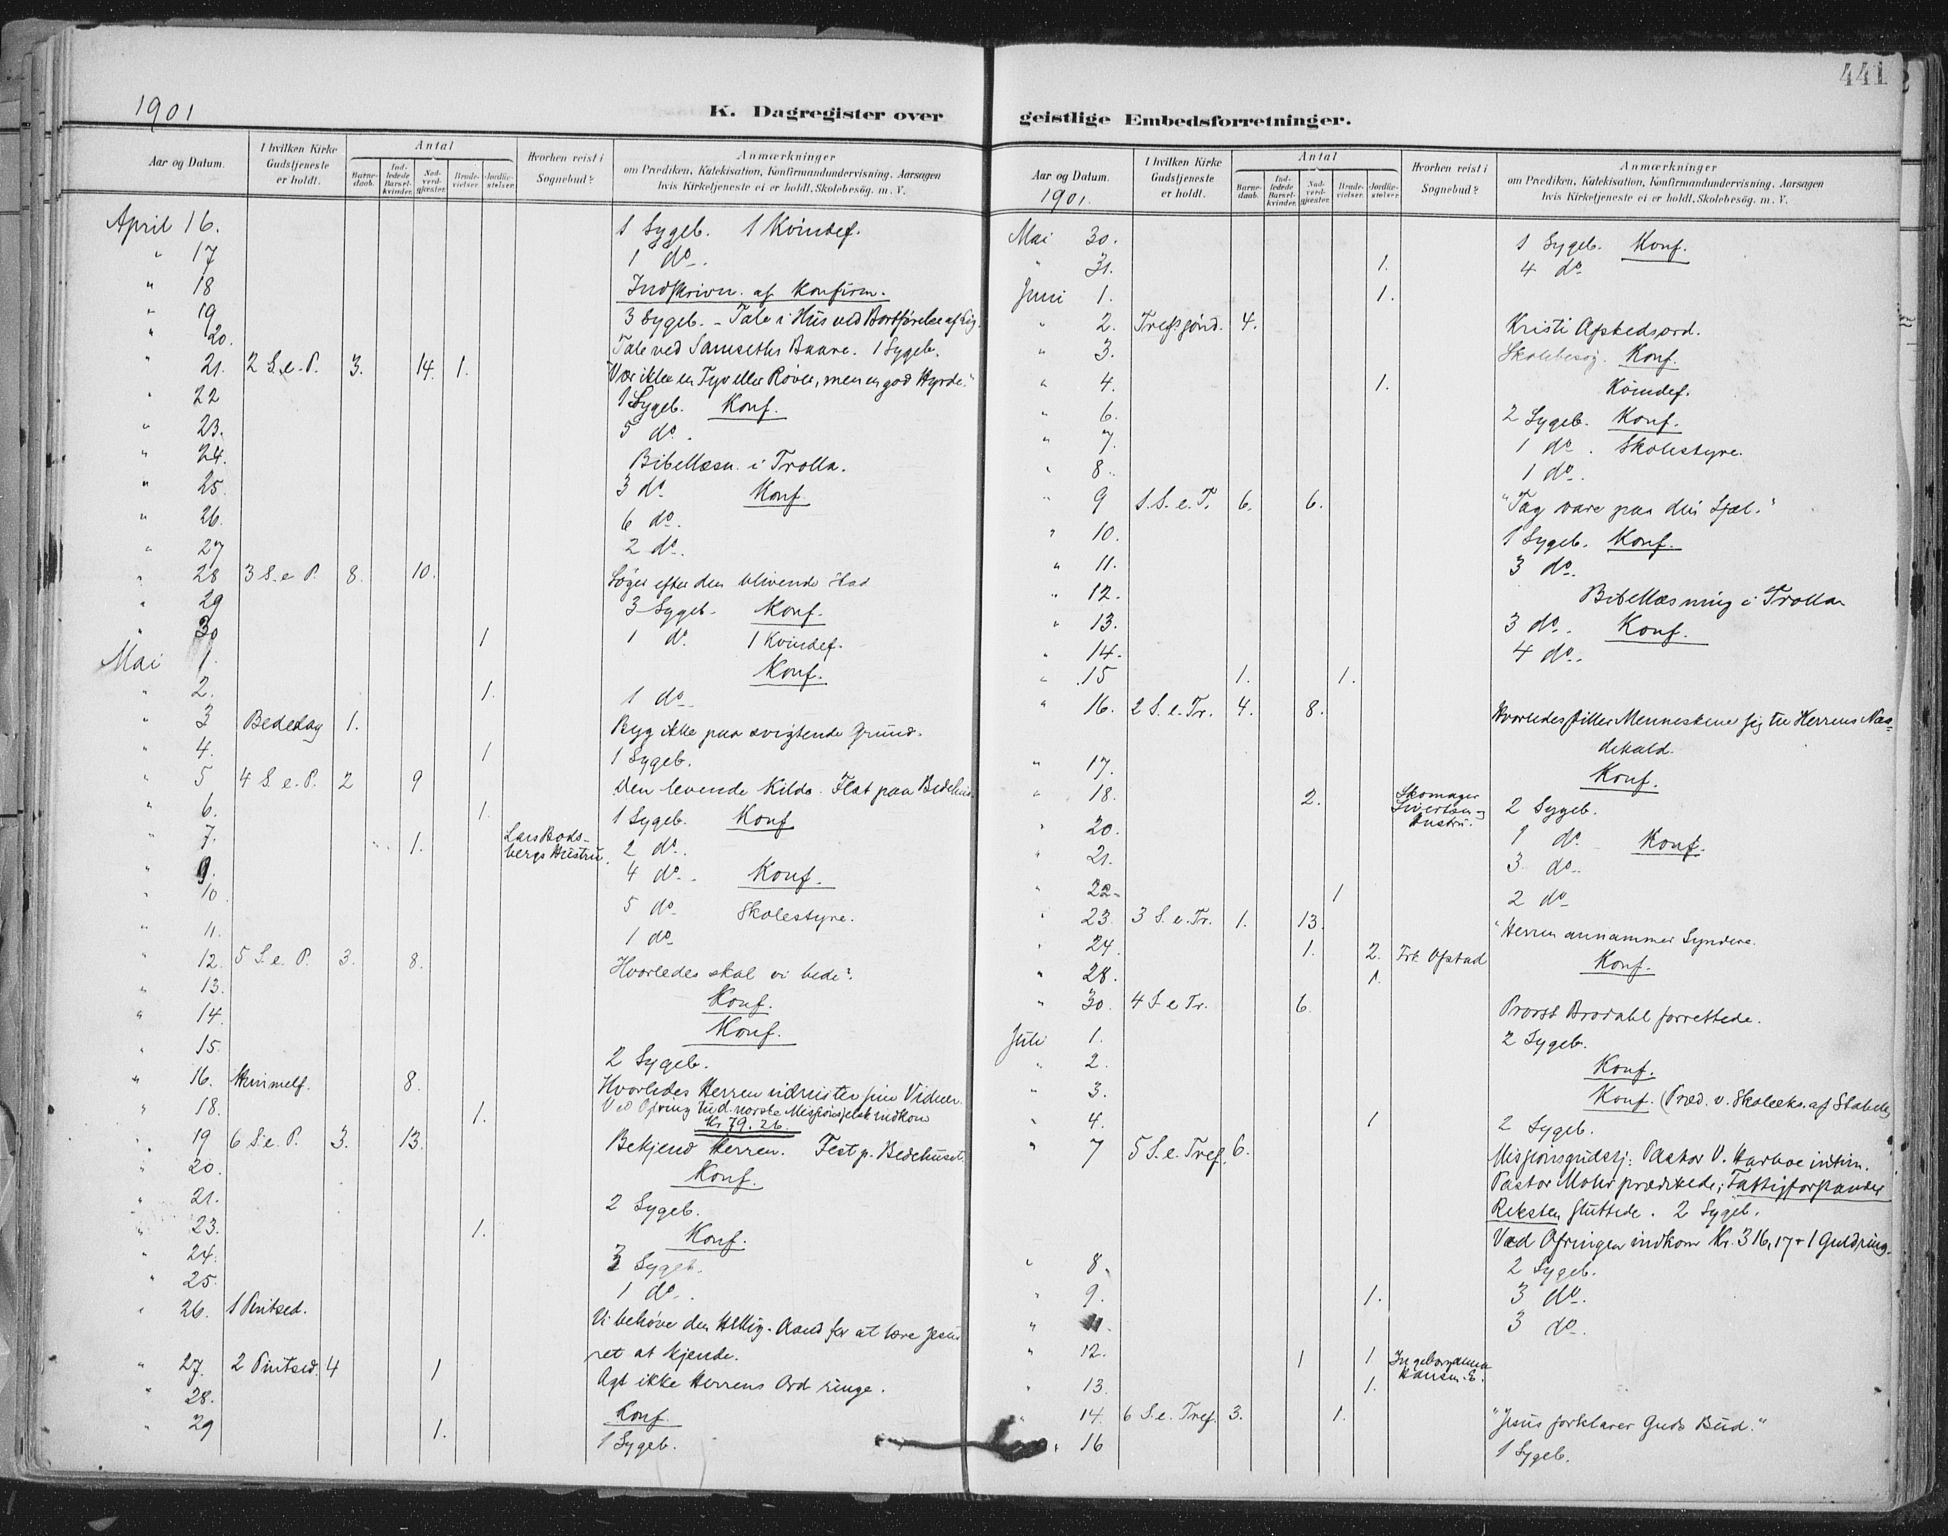 441
1901
K. Dagregister over
Aar og Datum.
I hvilken Kirke Gudstjeneste er holdt.
Antal
Barne-daab.
Ind-ledede Barsel-kvinder.
Nad-verd-gjester.
Brude-vielser.
Jordfæ-stelser.
Hvorhen reist i Sognebud?
Anmærkninger
om Prædiken, Katekisation, Konfirmandundervisning. Aarsagen
hvis Kirketjeneste ei er holdt, Skolebesøg. m. V.
April 16. 1 Sygeb. 1 Kvindef.
" 17 1 do.
" 18 Indskrivn. af Konfirm.
" 19 3 Sygeb. - Tale i Hus ved Bortførelse af Lig.
" 20. Tale ved Samseths Baare. 1 Sygeb.
" 21. 2 S. e. P. 3. 14. 1. "Vær ikke en Tyv eller Røver, men en god Hyrde."
" 22 1 Sygeb. Konf.
" 23. 5 do.
" 24. Bibellæsn. i Trolla.
" 25. 3 do Konf.
" 26. 6 do.
" 27 2 do.
" 28 3 S. e P. 8. 10. Søger efter den blivende Stad
" 29 3 Sygeb. Konf.
" 30 1 1 do. 1 Kvindef.
Mai 1. Konf.
" 2. 1. 1 do.
" 3 Bededag 1. Byg ikke paa svigtende Grund.
" 4. 1 1 Sygeb.
" 5 4 S. e. P. 2 9 Den levende Kilde. Fest paa Bedehus.
" 6. 1. 1 Sygeb. Konf
" 7. 1. Lars Bods-bergs Hustru. 2 do.
" 9. 4 do. Konf.
" 10 5 do Skolestyre.
" 11. 1 do
" 12. 5 S. e. P. 3. 8. Hvorledes skal vi bede?
" 13. Konf.
" 14. Konf.
" 15. 2 Sygeb.
" 16. Himmelf. 8. Hvorledes Herren udruster sine Vidner.
Ved Ofring til d. norske Missionsselsk indkom
" 18. 1. Kr 79.26.
" 19 6 S. e. P. 3. 13. Bekjend Herren. Fest p. Bedehuset.
" 20. Konf.
" 21. 2 Sygeb.
" 23. 1. Konf.
" 24. 3 Sygeb.
" 25. 1 do.
" 26. 1 Pintsed. Vi behøve den Hellig-Aand for at lære Jesus
ret at kjende.
" 27. 2 Pintsed. 4 1 Agt ikke Herrens Ord ringe.
" 28. Konf.
" 29 1. 1 Sygeb.
geistlige Embedsforretninger.
Aar og Datum.
1901.
I hvilken Kirke Gudstjeneste er holdt.
Antal
Barne-daab.
Ind-ledede Barsel-kvinder.
Nad-verd-gjester.
Brude-vielser.
Jordfæ-stelser.
Hvorhen reist i Sognebud?
Anmærkninger
om Prædiken, Katekisation, Konfirmandundervisning. Aarsagen
hvis Kirketjeneste ei er holdt, Skolebesøg. m. V.
Mai 30. 1 Sygeb. Konf.
" 31. 1. 4 do
Juni 1. 1.
" 2. Trefsønd. 4. Kristi Afskedsord.
" 3. Skolebesøg. Konf.
" 4. 1. Kvindef.
" 6. 2 Sygeb. Konf.
" 7. 1 do. Skolestyre.
" 8. 1 do.
" 9 1. S. e. T. 6. 6. "Tag vare paa din Sjæl."
" 10. 1 Sygeb. Konf.
" 11. 3 do.
" 12. Bibellæsning i Trolla
" 13. 3 do. Konf.
" 14. 4 do.
" 15 1. 1.
" 16. 2 S. e. Tr. 4. 8. Hvorledes stiller Menneskene sig til Herrens Naa-
dekald.
" 17. Konf.
" 18. 2. Skomager Sivertsens Hustru. 2 Sygeb.
" 20. 1 do. Konf.
" 21. 3 do.
" 22. 1 2 do
" 23. 3 S. e. Tr. 1. 13. "Herren annammer Syndere.
" 24. 1. 2. Frk Ofstad Konf.
" 28. 1.
" 30. 4 S e Tr. 6. Provst Brodahl forrettede.
Juli 1. 2 Sygeb.
" 2. Konf.
" 3. Konf. (Præd. v. Skoleeks. af Stabel)
" 4. 1 2 Sygeb.
" 7 5 S. e. Tref. 6. Missionsgudstj: Pastor V. Harboe intim.
Pastor Mohr prædikede; Fattigforstander
Riksten sluttede. 2 Sygeb.
Ved Ofringen indkom Kr. 316,17 + 1 Guldring.
" 8. 2 Sygeb.
" 9. 1. 3 do.
" 11. 3 do.
" 12. 1 1 Ingeborg Hansen. E.
" 13. 1.
" 14. 6 S. e. Tref. 3. 1. "Jesus forklarer Guds Bud."
" 16 1 Sygeb.